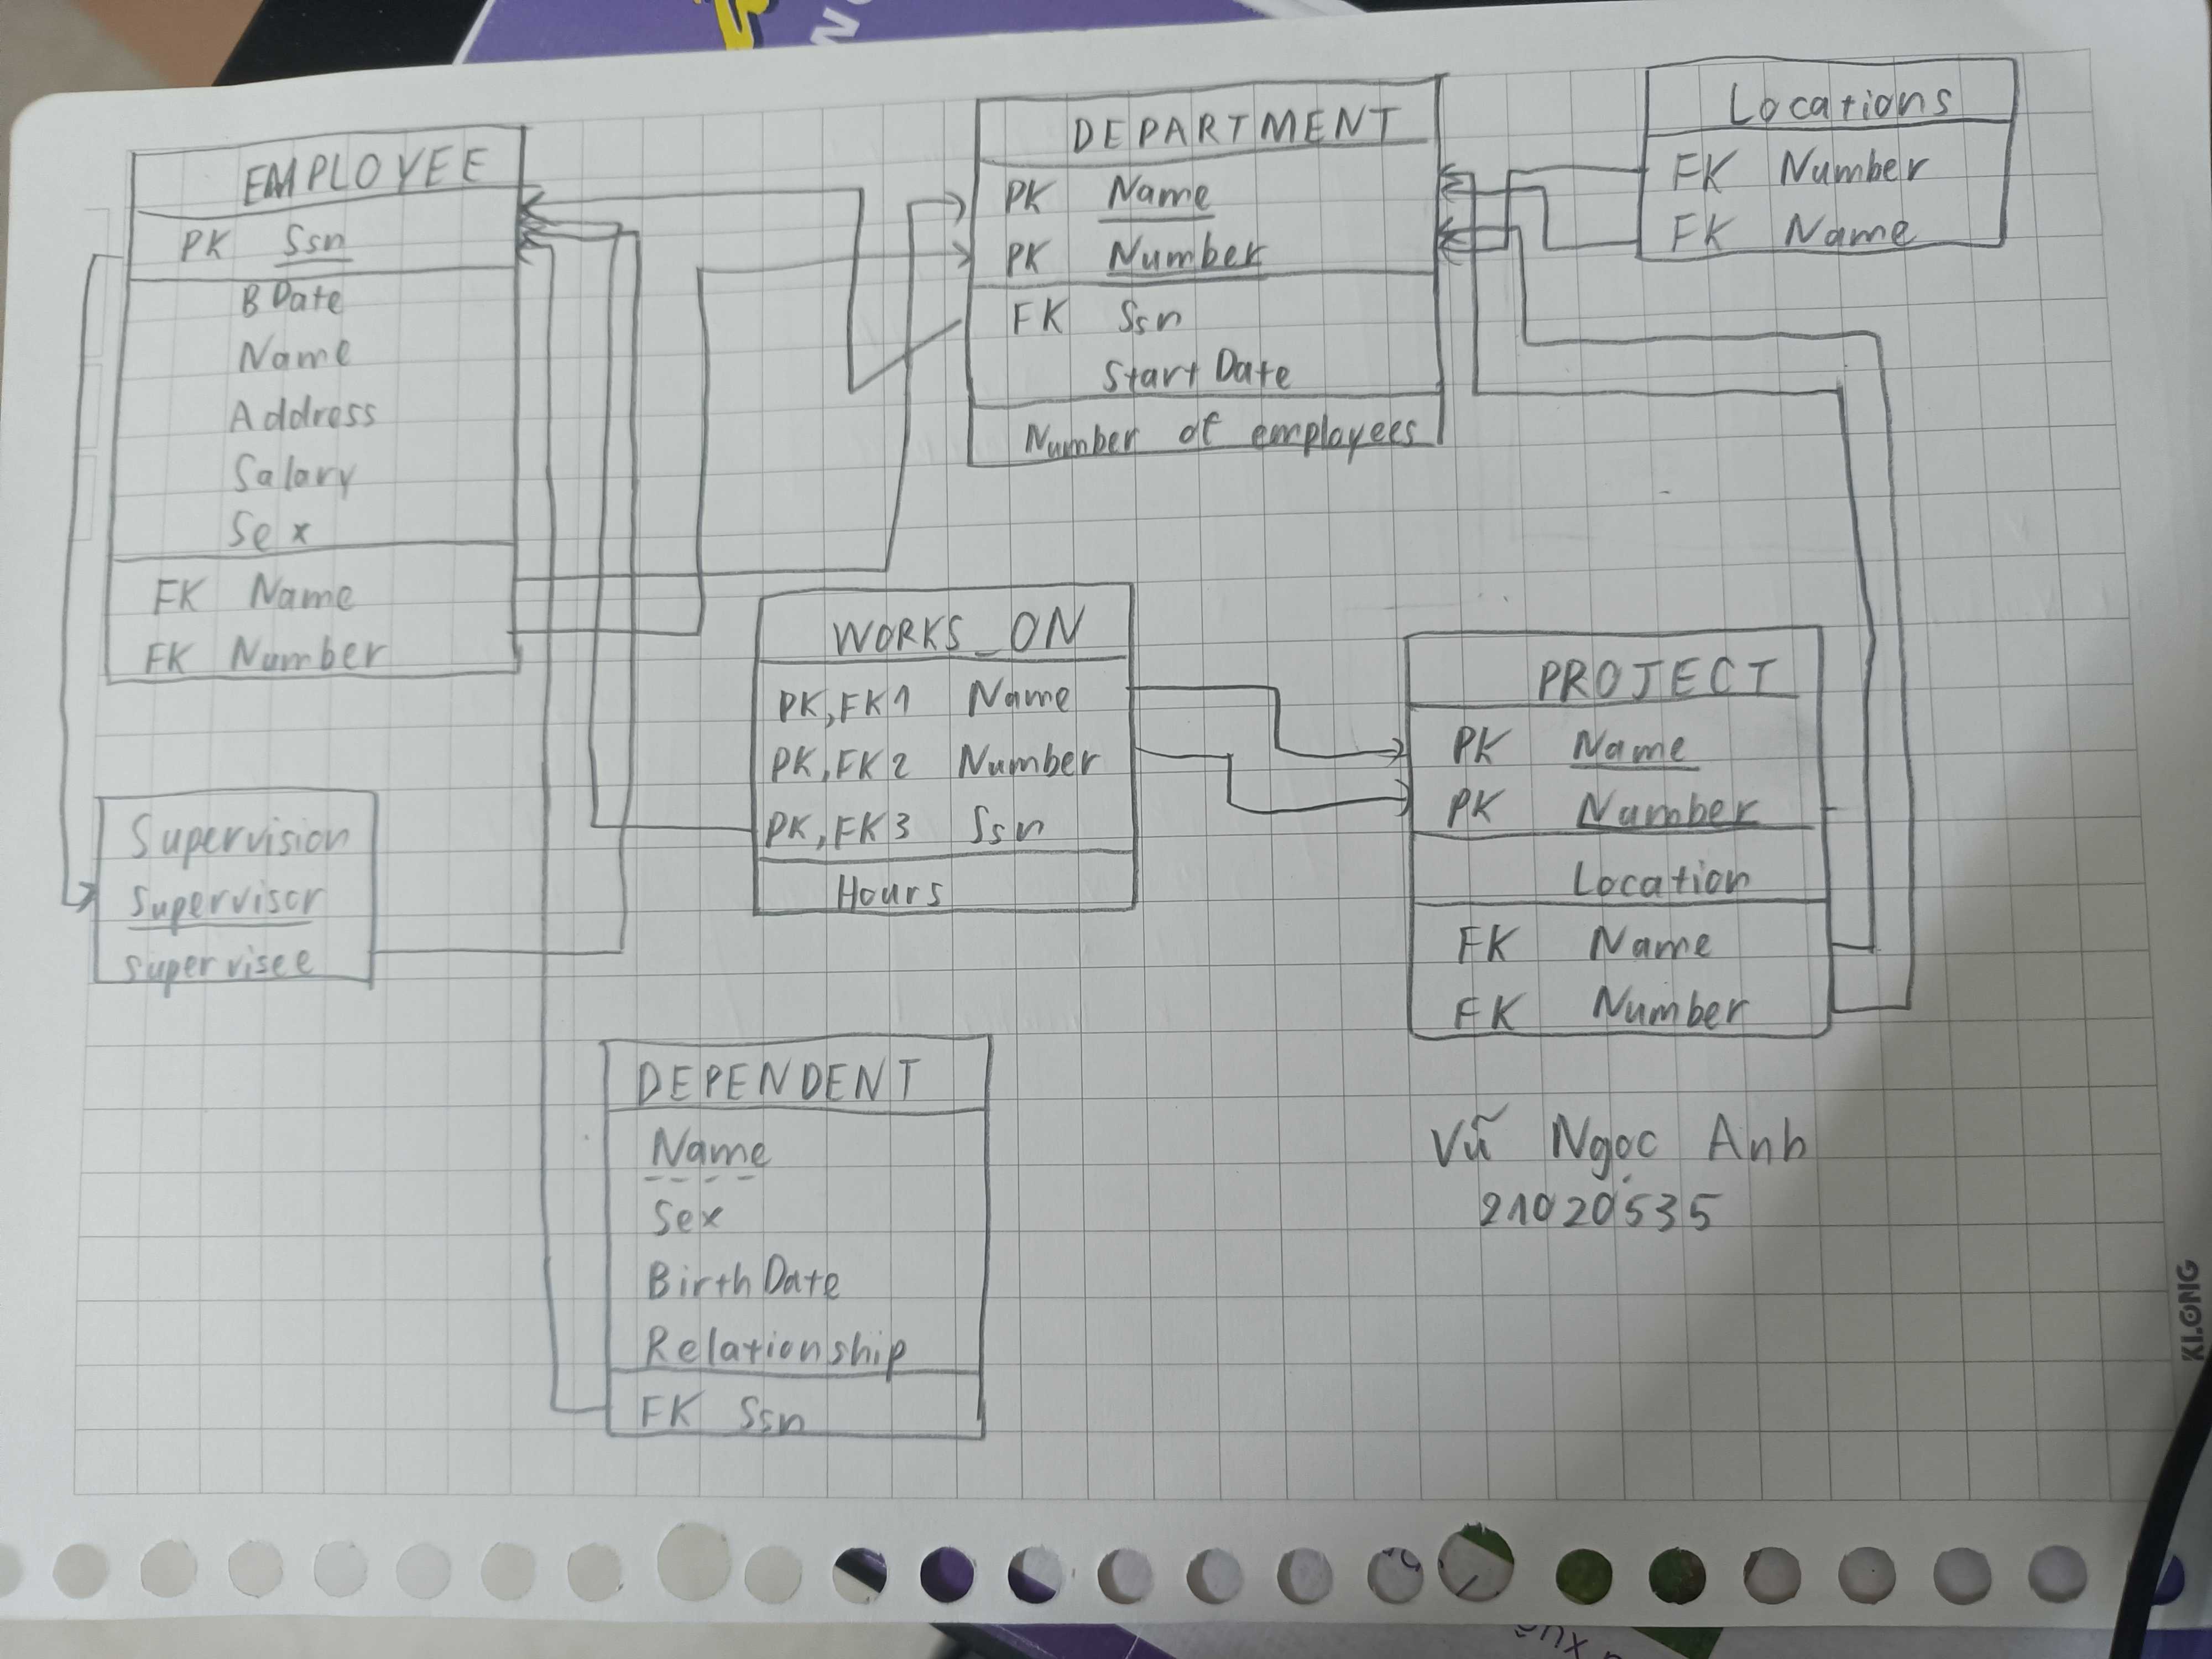 EMPLOYEE
PK Ssn
BDate
Name
Address
Salary
Sex
FK Name
FK Number
DEPARTMENT
PK Name
PK Number
FK Ssn
Start Date
Number of employees
Locations
FK Number
FK Name
WORKS_ON
PK,FK1 Name
PK,FK2 Number
PK,FK3 Ssn
Hours
PROJECT
PK Name
PK Number
Location
FK Name
FK Number
Supervision
Supervisor
supervisee
DEPENDENT
Name
Sex
Birth Date
Relationship
FK Ssn
Vũ Ngọc Anh
21020535
KLONG